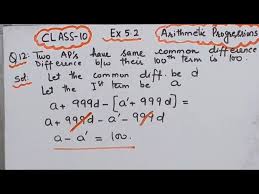 CLASS-10 Ex 5.2 Arithmetic Progressions
Q12: Two AP's have same common difference
Difference b/w their 100th term is 100.
Sol: Let the common diff. be d
Let the Ist term be a
a + 999d - [a' + 999d] =
a + 999d - a' - 999d =
a - a' = 100.